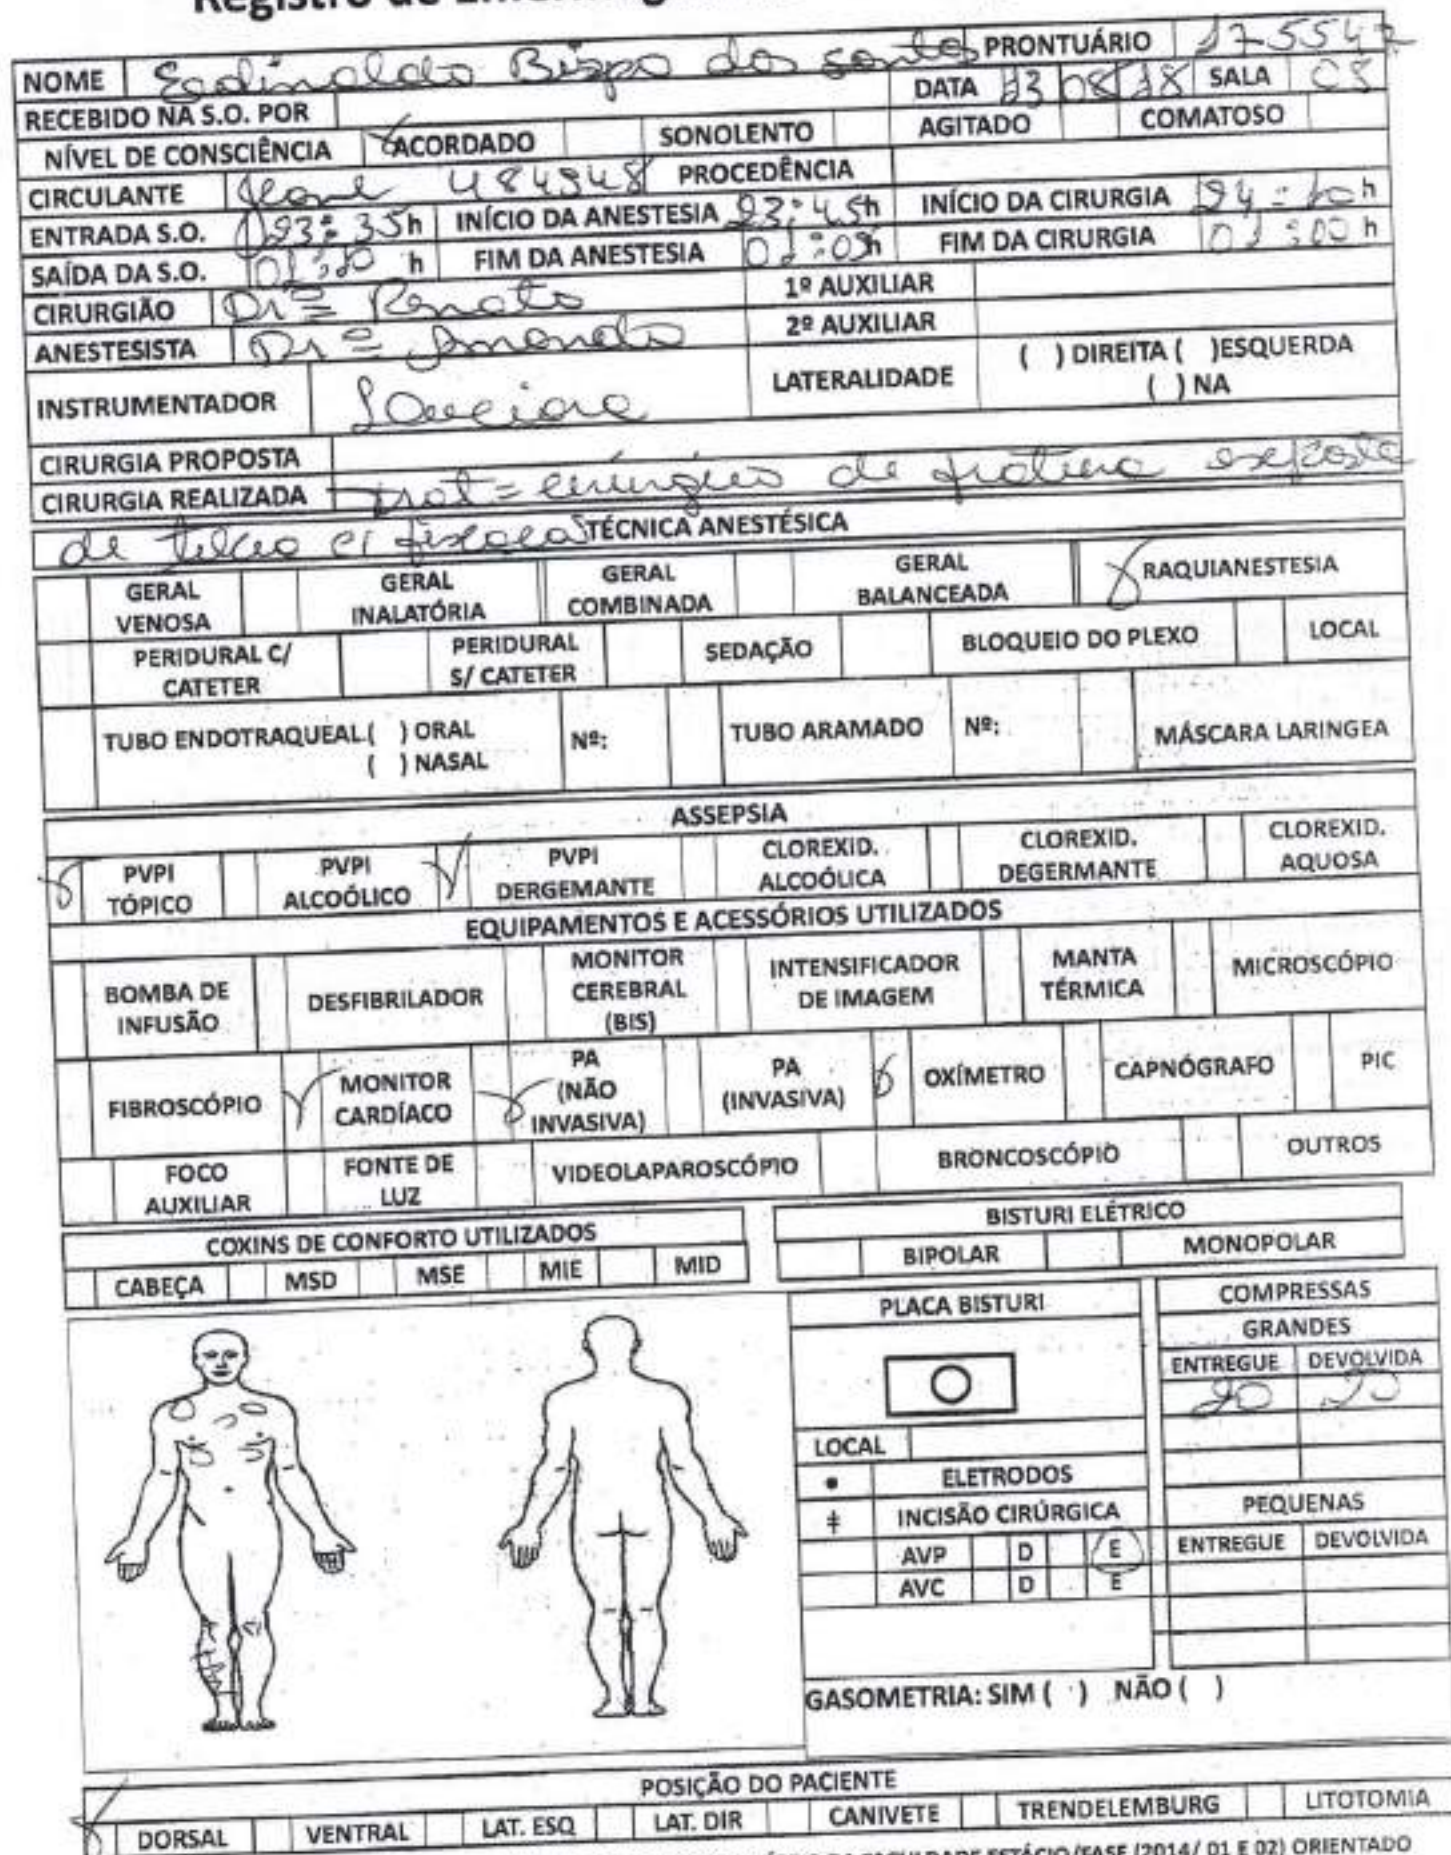 Registro de
NOME Edinaldo Bispo dos Santos PRONTUÁRIO 175547
RECEBIDO NA S.O. POR DATA 13 08 18 SALA 03
NÍVEL DE CONSCIÊNCIA ACORDADO SONOLENTO AGITADO COMATOSO
CIRCULANTE 484948 PROCEDÊNCIA
ENTRADA S.O. 23:35h INÍCIO DA ANESTESIA 23:45h INÍCIO DA CIRURGIA 24:10h
SAÍDA DA S.O. 01:10 h FIM DA ANESTESIA 01:05h FIM DA CIRURGIA 01:00 h
CIRURGIÃO Drº Renato 1º AUXILIAR
ANESTESISTA Drª Amanda 2º AUXILIAR
INSTRUMENTADOR LATERALIDADE ( ) DIREITA ( )ESQUERDA
( ) NA
CIRURGIA PROPOSTA
CIRURGIA REALIZADA trat= cirúrgico de fratura exposta
de TÉCNICA ANESTÉSICA
GERAL VENOSA GERAL INALATÓRIA GERAL COMBINADA GERAL BALANCEADA RAQUIANESTESIA
PERIDURAL C/ CATETER PERIDURAL S/ CATETER SEDAÇÃO BLOQUEIO DO PLEXO LOCAL
TUBO ENDOTRAQUEAL ( ) ORAL Nº: TUBO ARAMADO Nº: MÁSCARA LARINGEA
( ) NASAL
ASSEPSIA
PVPI TÓPICO PVPI ALCOÓLICO PVPI DERGEMANTE CLOREXID. ALCOÓLICA CLOREXID. DEGERMANTE CLOREXID. AQUOSA
EQUIPAMENTOS E ACESSÓRIOS UTILIZADOS
BOMBA DE INFUSÃO DESFIBRILADOR MONITOR CEREBRAL (BIS) INTENSIFICADOR DE IMAGEM MANTA TÉRMICA MICROSCÓPIO
FIBROSCÓPIO MONITOR CARDÍACO PA (NÃO INVASIVA) PA (INVASIVA) OXÍMETRO CAPNÓGRAFO PIC
FOCO AUXILIAR FONTE DE LUZ VIDEOLAPAROSCÓPIO BRONCOSCÓPIO OUTROS
COXINS DE CONFORTO UTILIZADOS BISTURI ELÉTRICO
CABEÇA MSD MSE MIE MID BIPOLAR MONOPOLAR
PLACA BISTURI COMPRESSAS
GRANDES
ENTREGUE DEVOLVIDA
20 20
LOCAL
ELETRODOS
INCISÃO CIRÚRGICA PEQUENAS
AVP D E ENTREGUE DEVOLVIDA
AVC D E
GASOMETRIA: SIM ( ) NÃO ( )
POSIÇÃO DO PACIENTE
DORSAL VENTRAL LAT. ESQ LAT. DIR CANIVETE TRENDELEMBURG LITOTOMIA
DA FACULDADE ESTÁCIO/FASE (2014/ 01 E 02) ORIENTADO